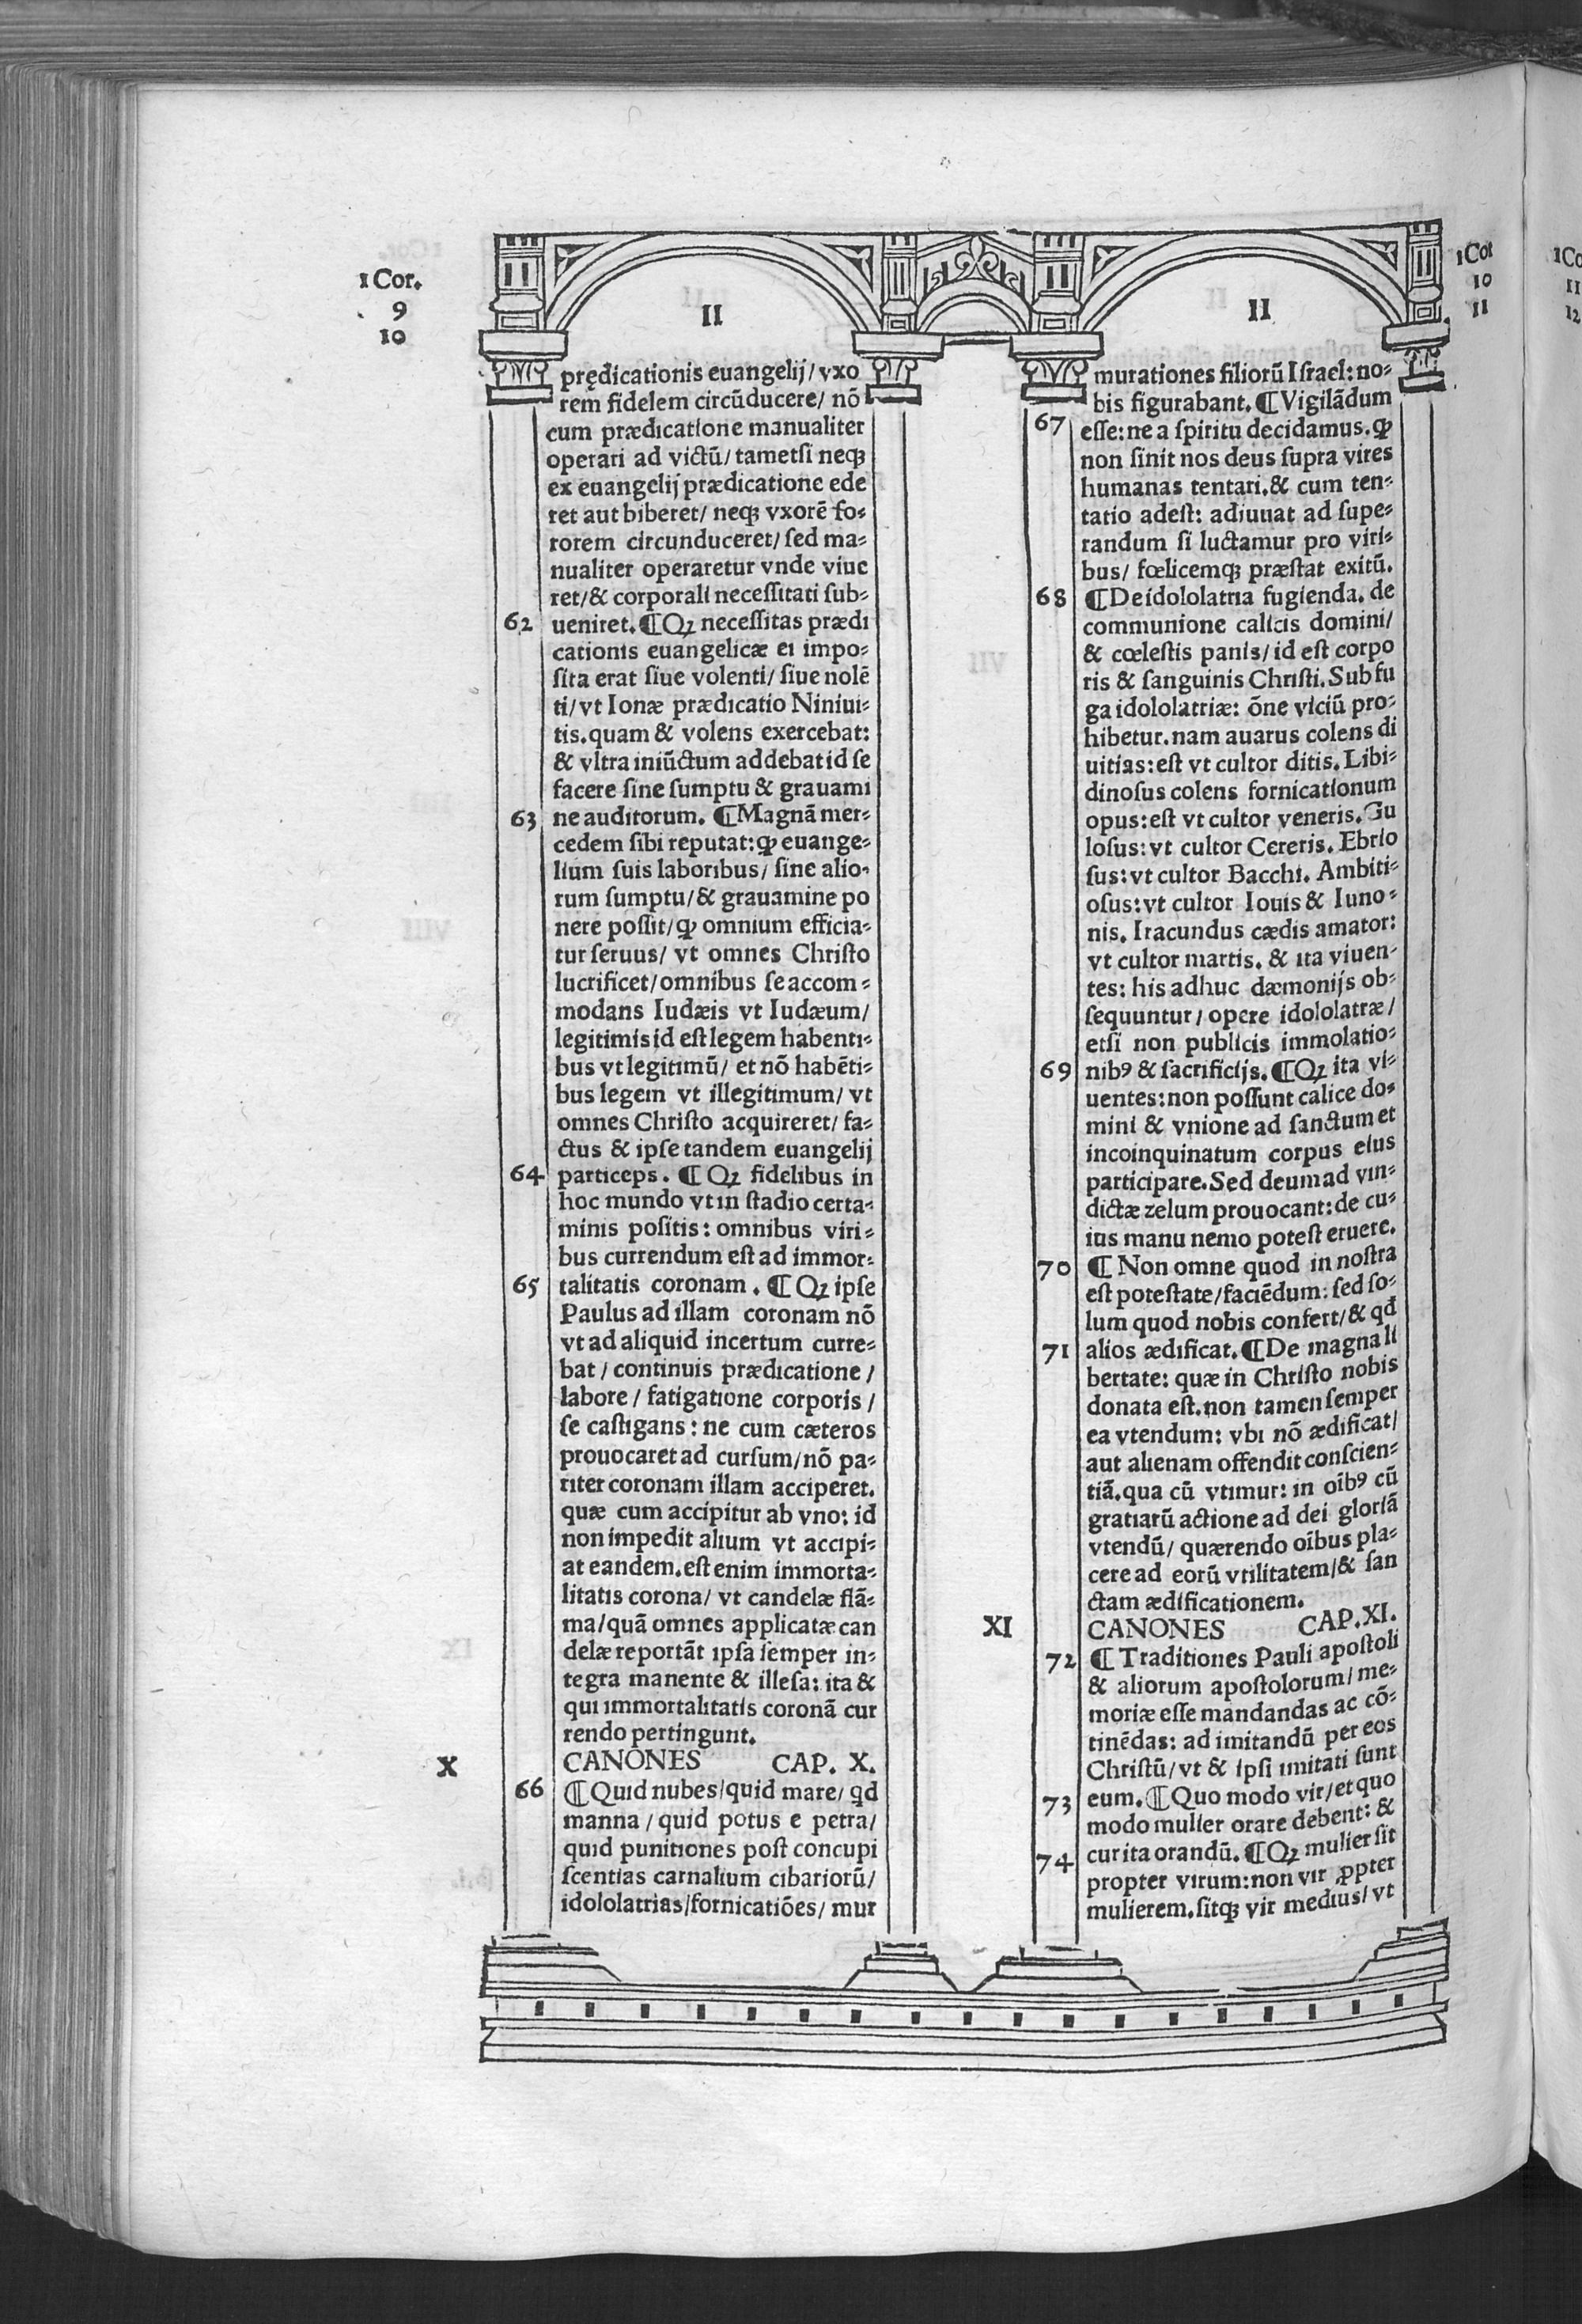 1 Cor.
9
10
II
prędicationis euangelij/ vxo
rem fidelem circũducere/ nõ
cum prædicatione manualiter
operari ad victũ/ tametsi neqꝫ
ex euangelij prædicatione ede
ret aut biberet/ neqꝫ vxorẽ so⸗
rorem circunduceret/ sed ma⸗
nualiter operaretur vnde viue
ret/ & corporali necessitati sub⸗
62 ueniret. ¶ Qꝫ necessitas prædi
cationis euangelicæ ei impo⸗
sita erat siue volenti/ siue nolẽ
ti/ vt Ionæ prædicatio Niniui⸗
tis. quam & volens exercebat:
& vltra iniũctum addebat id se
facere sine sumptu & grauami
63 ne auditorum. ¶ Magnã mer⸗
cedem sibi reputat: ꝙ euange⸗
lium suis laboribus/ sine alio⸗
rum sumptu/ & grauamine po
nere possit/ ꝙ omnium efficia⸗
tur seruus/ vt omnes Christo
lucrificet/ omnibus se accom⸗
modans Iudæis vt Iudæum/
legitimis id est legem habenti⸗
bus vt legitimũ/ et nõ habẽti⸗
bus legem vt illegitimum/ vt
omnes Christo acquireret/ fa⸗
ctus & ipse tandem euangelij
64 particeps. ¶ Qꝫ fidelibus in
hoc mundo vt in stadio certa⸗
minis positis: omnibus viri⸗
bus currendum est ad immor⸗
65 talitatis coronam. ¶ Qꝫ ipse
Paulus ad illam coronam nõ
vt ad aliquid incertum curre⸗
bat/ continuis prædicatione/
labore/ fatigatione corporis/
se castigans: ne cum cæteros
prouocaret ad cursum/ nõ pa⸗
riter coronam illam acciperet.
quæ cum accipitur ab vno: id
non impedit alium vt accipi⸗
at eandem. est enim immorta⸗
litatis corona/ vt candelæ flã⸗
ma/ quã omnes applicatæ can
delæ reportãt ipsa semper in⸗
tegra manente & illesa: ita &
qui immortalitatis coronã cur
rendo pertingunt.
X CANONES CAP. X.
66 ¶ Quid nubes/ quid mare/ qd
manna/ quid potus e petra/
quid punitiones post concupi
scentias carnalium cibariorũ/
idololatrias/ fornicatiões/ mur
1 Cor
10
11
II
murationes filiorũ Israel: no⸗
bis figurabant. ¶ Vigilãdum
67 esse: ne a spiritu decidamus. ꝙ
non sinit nos deus supra vires
humanas tentari. & cum ten⸗
tatio adest: adiuuat ad supe⸗
randum si luctamur pro viri⸗
bus/ fœlicemqꝫ præstat exitũ.
68 ¶ De idololatria fugienda. de
communione calicis domini/
& cœlestis panis/ id est corpo
ris & sanguinis Christi. Sub fu
ga idololatriæ: õne viciũ pro⸗
hibetur. nam auarus colens di
uitias: est vt cultor ditis. Libi⸗
dinosus colens fornicationum
opus: est vt cultor veneris. Gu
losus: vt cultor Cereris. Ebrio
sus: vt cultor Bacchi. Ambiti⸗
osus: vt cultor Iouis & Iuno⸗
nis. Iracundus cædis amator:
vt cultor martis. & ita viuen⸗
tes: his adhuc dæmonijs ob⸗
sequuntur/ opere idololatræ/
etsi non publicis immolatio⸗
69 nibꝰ & sacrificijs. ¶ Qꝫ ita vi⸗
uentes: non possunt calice do⸗
mini & vnione ad sanctum et
incoinquinatum corpus eius
participare. Sed deum ad vin⸗
dictæ zelum prouocant: de cu⸗
ius manu nemo potest eruere.
70 ¶ Non omne quod in nostra
est potestate/ faciẽdum: sed so⸗
lum quod nobis confert/ & qđ
71 alios ædificat. ¶ De magna li
bertate: quæ in Christo nobis
donata est. non tamen semper
ea vtendum: vbi nõ ædificat/
aut alienam offendit conscien⸗
tiã. qua cũ vtimur: in oĩbꝰ cũ
gratiarũ actione ad dei gloriã
vtendũ/ quærendo oĩbus pla⸗
cere ad eorũ vtilitatem/ & san
ctam ædificationem.
XI CANONES CAP. XI.
72 ¶ Traditiones Pauli apostoli
& aliorum apostolorum/ me⸗
moriæ esse mandandas ac cõ⸗
tinẽdas: ad imitandũ per eos
Christũ/ vt & ipsi imitati sunt
73 eum. ¶ Quo modo vir/ et quo
modo mulier orare debent: &
74 cur ita orandũ. ¶ Qꝫ mulier sit
propter virum: non vir ꝓpter
mulierem. sitqꝫ vir medius/ vt
1 Co
11
12